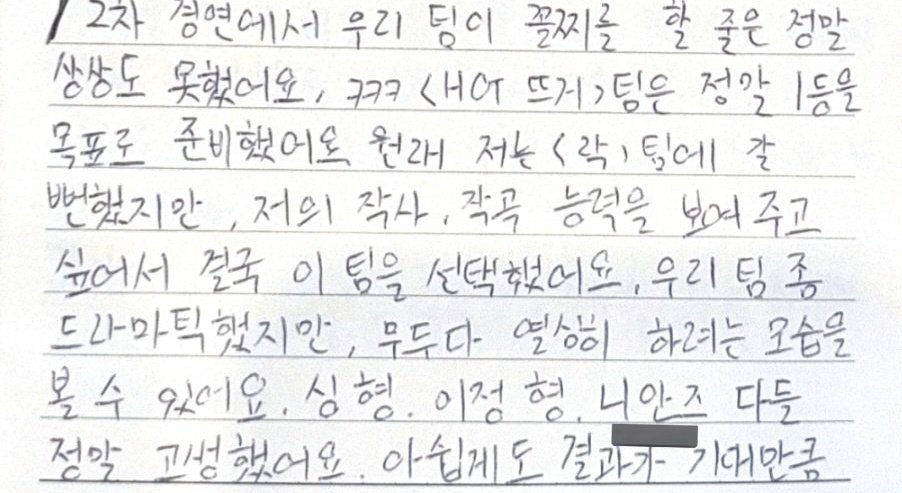 2차 경연에서 우리 팀이 꼴찌를 할 줄은 정말
상상도 못했어요, ㅋㅋㅋ <HOT 뜨거>팀은 정말 1등을
목표로 준비했어요 원래 저는 <락> 팀에 갈
뻔했지만, 저의 작사, 작곡 능력을 보여 주고
싶어서 결국 이 팀을 선택했어요. 우리 팀 좀
드라마틱했지만, 무두다 열심히 하려는 모습을
볼 수 있어요. 싱 형. 이정 형. 니안즈 다들
정말 고생했어요. 아쉽게도 결과가 기대만큼